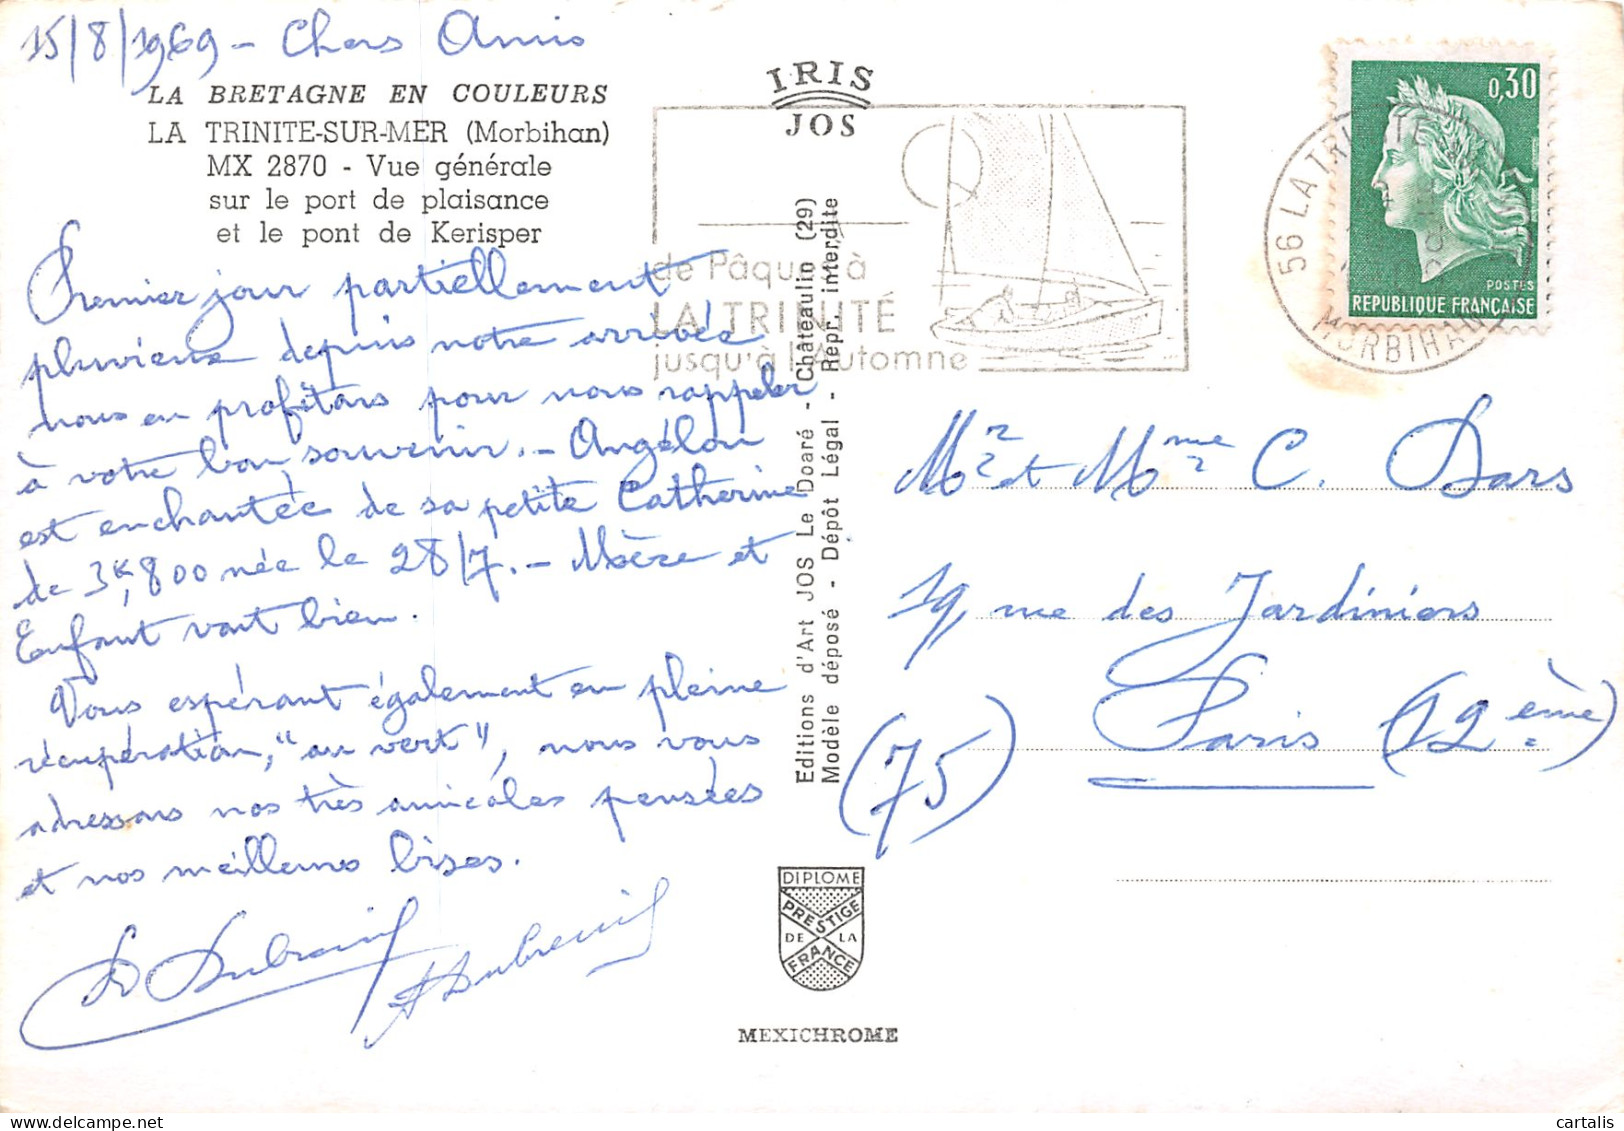 15/8/1969 - Chers Amis
LA BRETAGNE EN COULEURS
LA TRINITE-SUR-MER (Morbihan)
MX 2870 - Vue générale
sur le port de plaisance
et le pont de Kerisper
Premier jour partiellement
pluvieux depuis notre arrivée
nous en profitons pour nous rappeler
à votre bon souvenir. - Angélou
est enchantée de sa petite Catherine
de 3K,800 née le 28/7. - Mère et
Enfant vont bien.
Vous espérant également en pleine
récupération, "au vert", nous vous
adressons nos très amicales pensées
et nos meilleures bises.
Dubreuil
Dubreuil
IRIS
JOS
de Pâques à
LA TRINITÉ
jusqu'à l'Automne
Editions d'Art JOS Le Doaré - Châteaulin (29)
Modèle déposé - Dépôt Légal - Repr. interdite
DIPLOME
PRESTIGE
DE LA
FRANCE
MEXICHROME
0,30
POSTES
REPUBLIQUE FRANÇAISE
56 LA TRINITE
MORBIHAN
Mr et Mme C. Dars
19, rue des Jardiniers
Paris (12ème)
(75)
cartalis